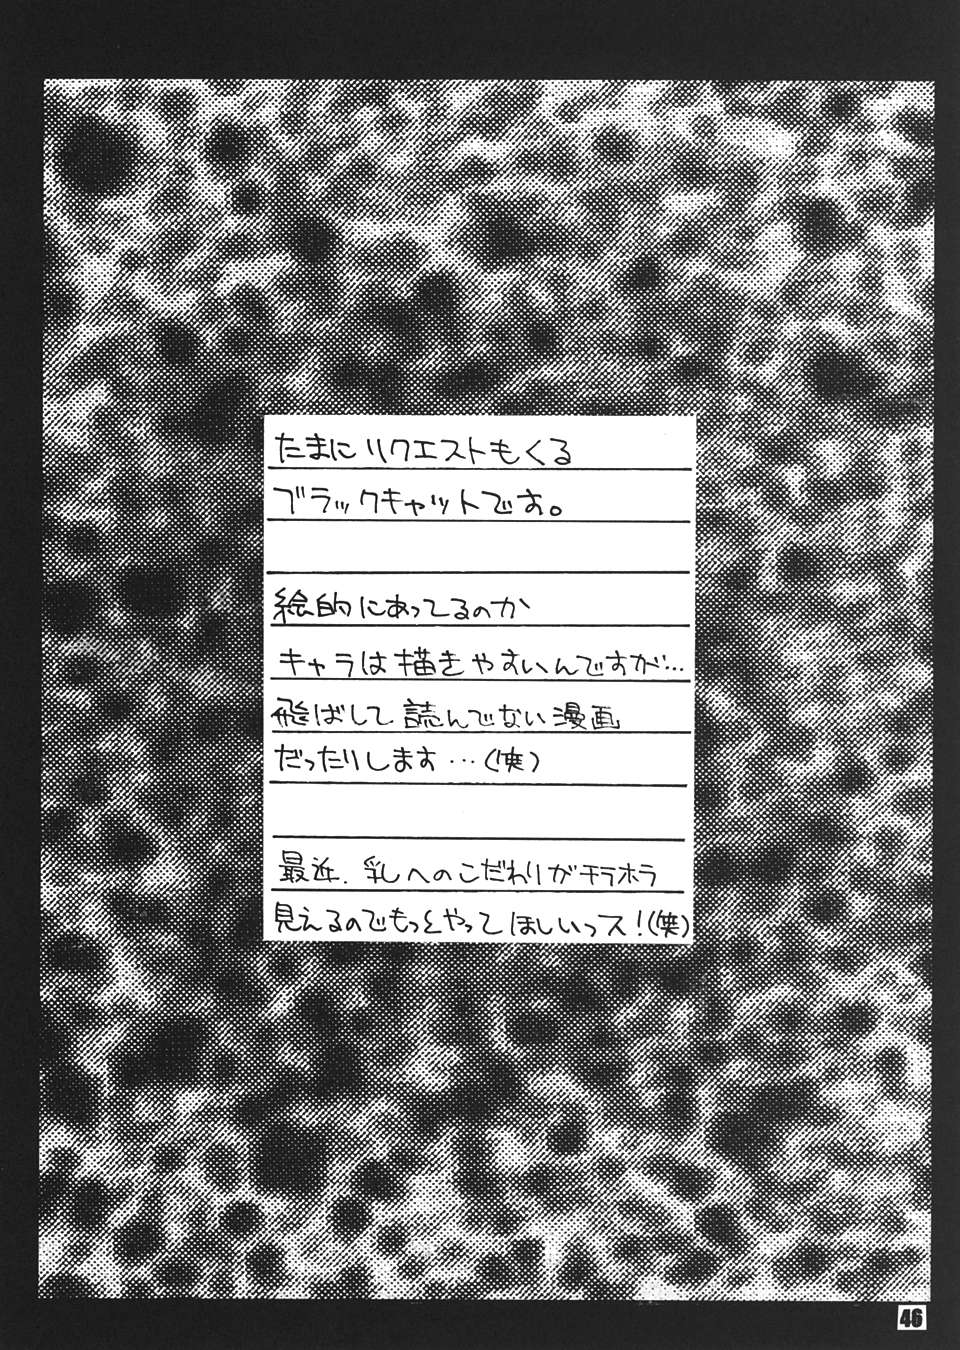 たまにリクエストもくる
ブラックキャットです。
絵的にあってるのか
キャラは描きやすいんですが…
飛ばして読んでない漫画
だったりします…(笑)
最近、乳へのこだわりがチラホラ
見えるのでもっとやってほしいっス!(笑)
46